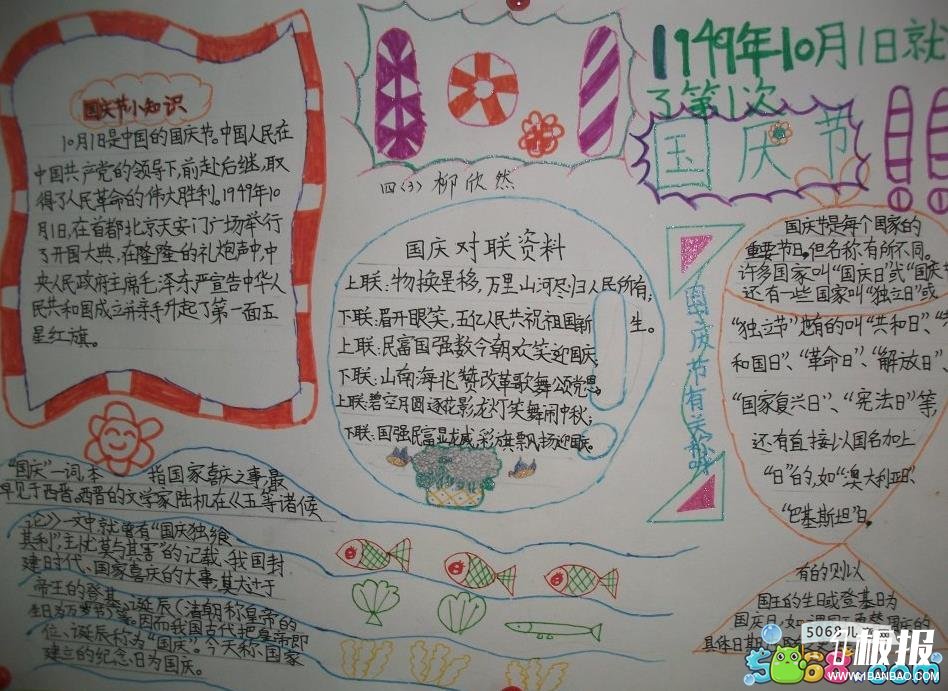 国庆节小知识
10月1日是中国的国庆节。中国人民在
中国共产党的领导下,前赴后继,取
得了人民革命的伟大胜利。1949年10
月1日,在首都北京天安门广场举行
了开国大典,在隆隆的礼炮声中,中
央人民政府主席毛泽东严宣告中华人
民共和国成立并亲手升起了第一面五
星红旗。
四(3) 柳欣然
国庆对联资料
上联:物换星移,万里山河尽归人民所有;
下联:眉开眼笑,五亿人民共祝祖国新生。
上联:民富国强数今朝欢笑迎国庆
下联:山南海北赞改革歌舞颂党恩
上联碧空月圆逐花影龙灯笑舞闹中秋;
下联:国强民富显龙威,彩旗飘扬迎国庆。
1949年10月1日就
了第1次
国庆节
国庆节有关称呼
国庆节是每个国家的
重要节日,但名称有所不同。
许多国家叫“国庆日”或“国庆节
还有一些国家叫“独立日”或
“独立节”也有的叫“共和日”、“
和国日”、“革命日”、“解放日”、
“国家复兴日”、“宪法日”等,
还有直接以国名加上
“日”的,如“澳大利亚日”、
“巴基斯坦日”,
有的则以
国王的生日或登基日为
国庆日,如
具体日期
“国庆”一词,本 指国家喜庆之事,最
早见于西晋。西晋的文学家陆机在《五等诸候
论》一文中就曾有“国庆独飨
其利,主忧莫与其害”的记载、我国封
建时代、国家喜庆的大事,莫大过于
帝王的登基、诞辰(清朝称皇帝的
生日为万岁节
位、诞辰称为“国庆”。今天称国家
建立的纪念日为国庆。
5068儿
板报
5068.com
WWW.1BANBAO.COM